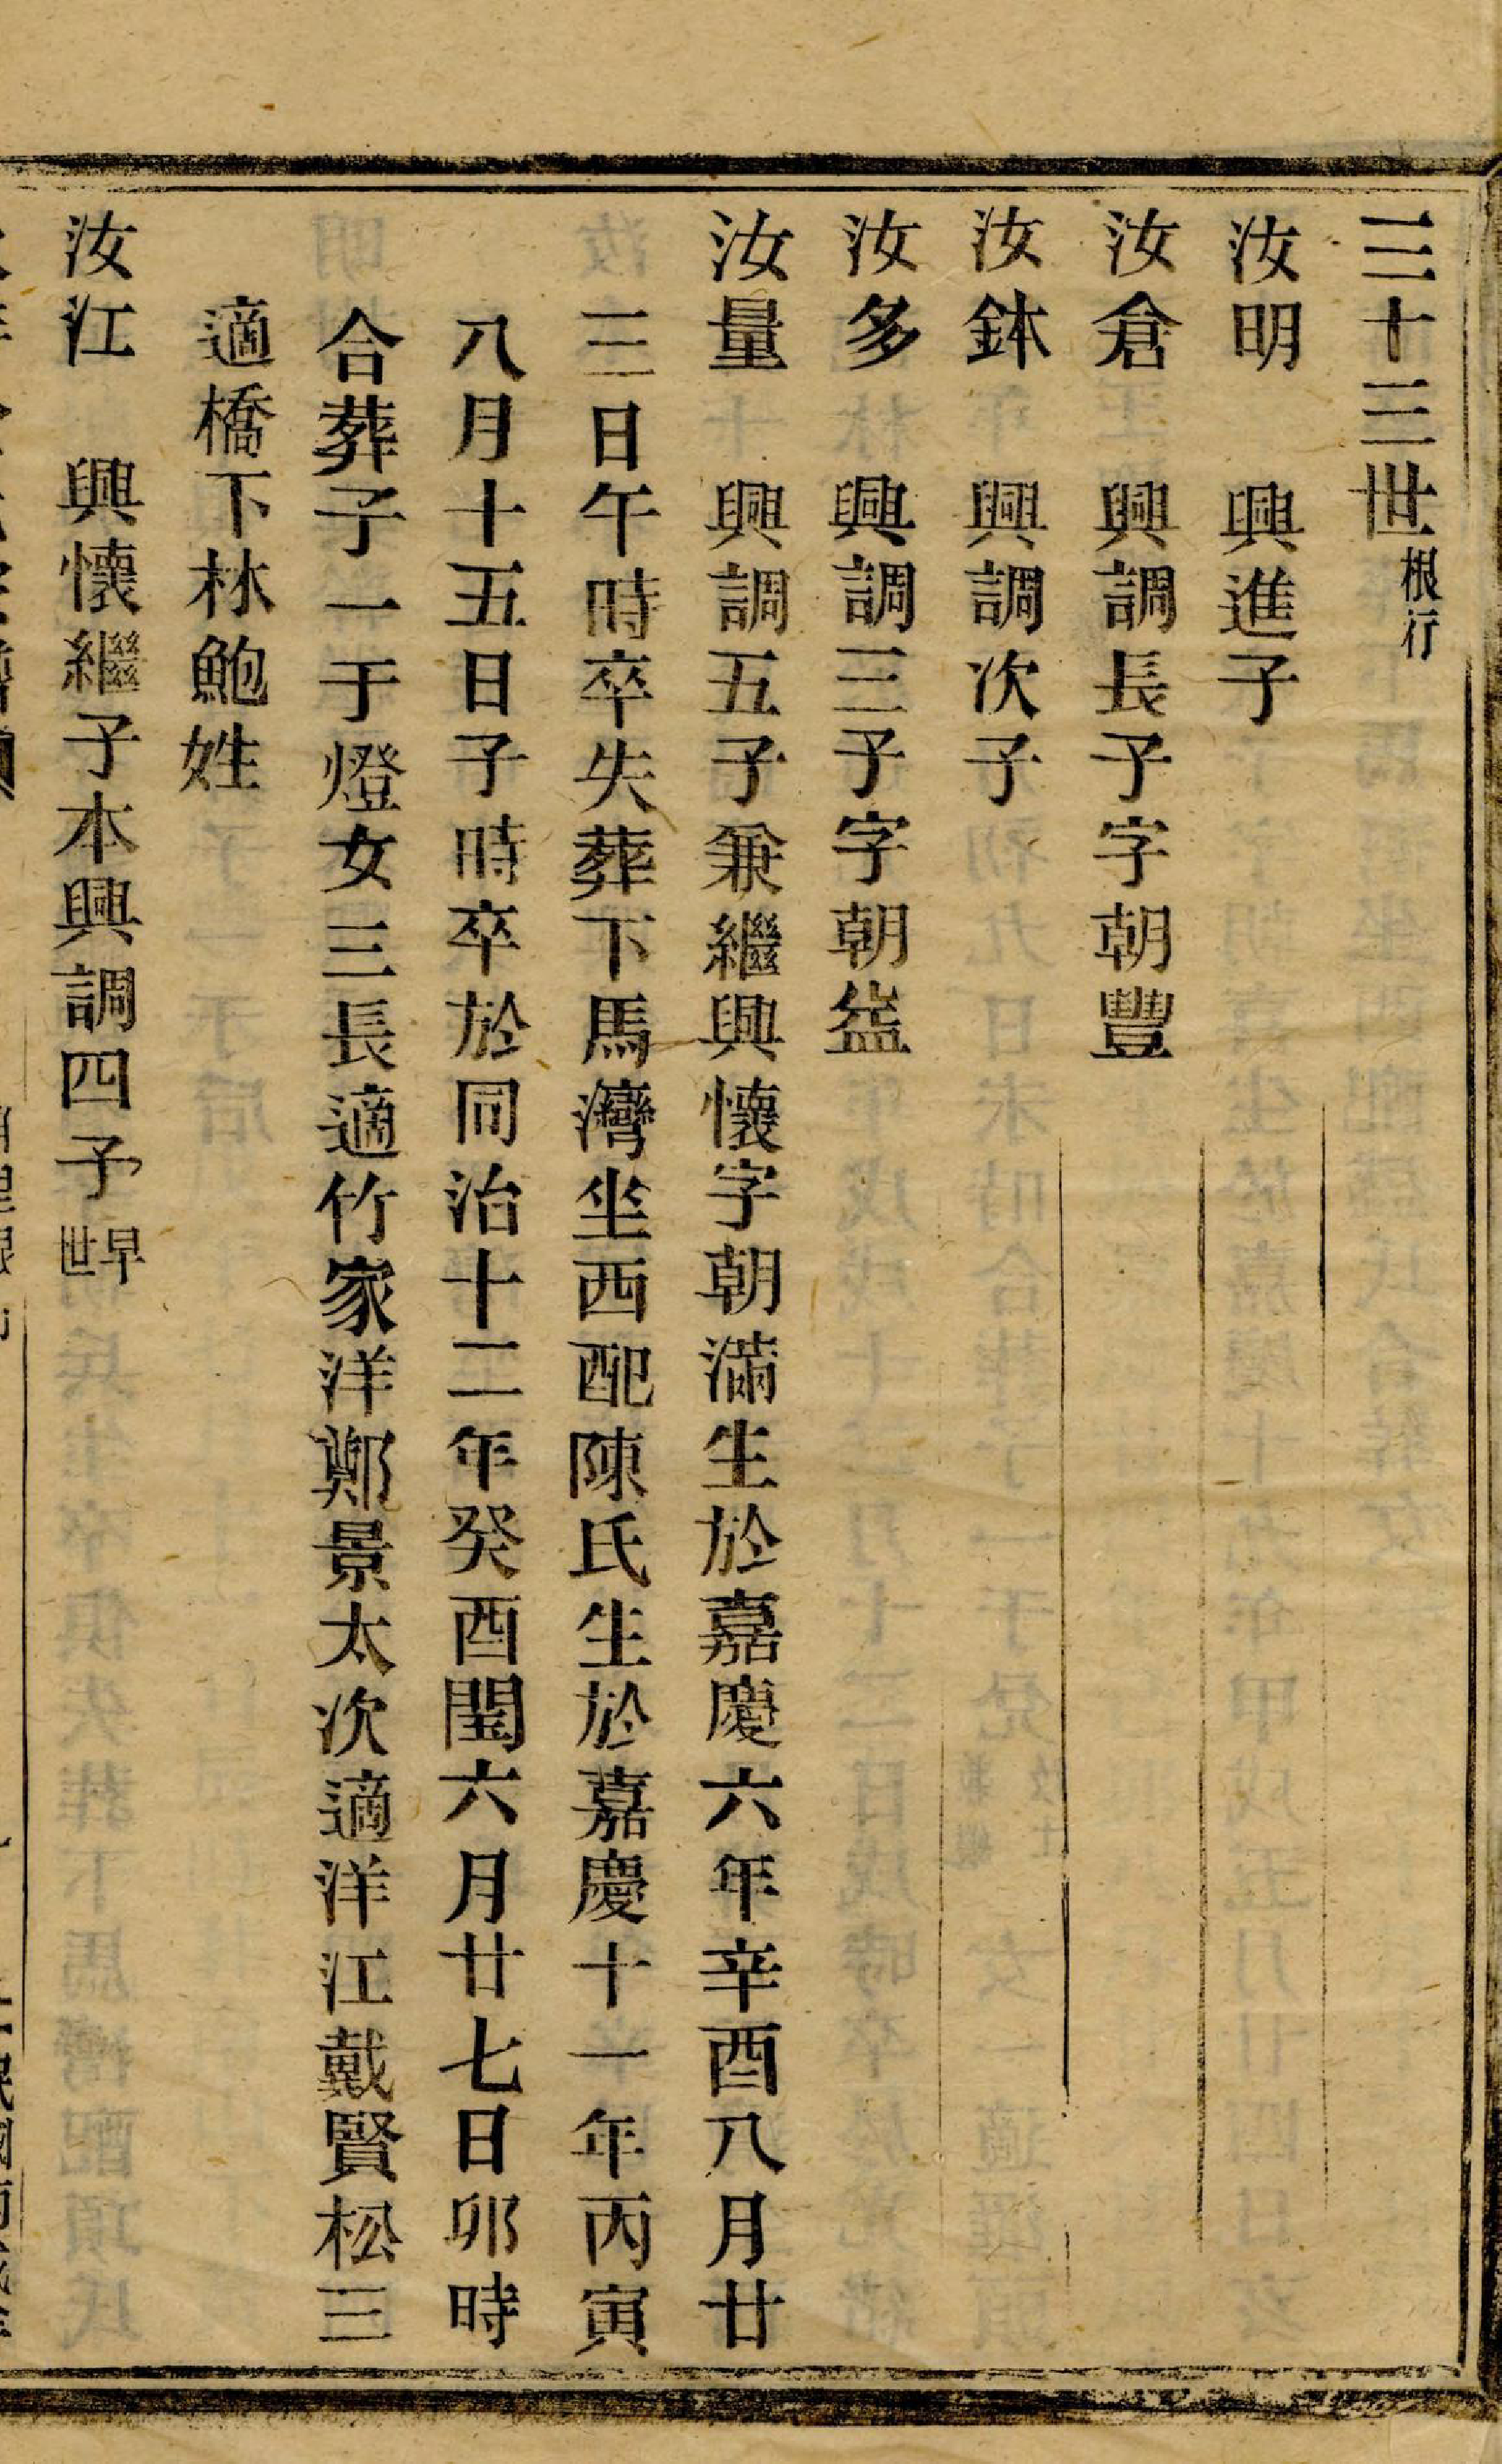 三十三世根行
汝明　興進子
汝倉　興調長子字朝豐
汝鉢　興調次子
汝多　興調三子字朝益
汝量　興調五子兼繼興懷字朝滿生於嘉慶六年辛酉八月廿
三日午時卒失葬下馬灣坐西配陳氏生於嘉慶十一年丙寅
八月十五日子時卒於同治十二年癸酉閏六月廿七日卯時
合葬子一于燈女三長適竹家洋鄭景太次適洋江戴賢松三
適橋下林鮑姓
汝江　興懷繼子本興調四子早世